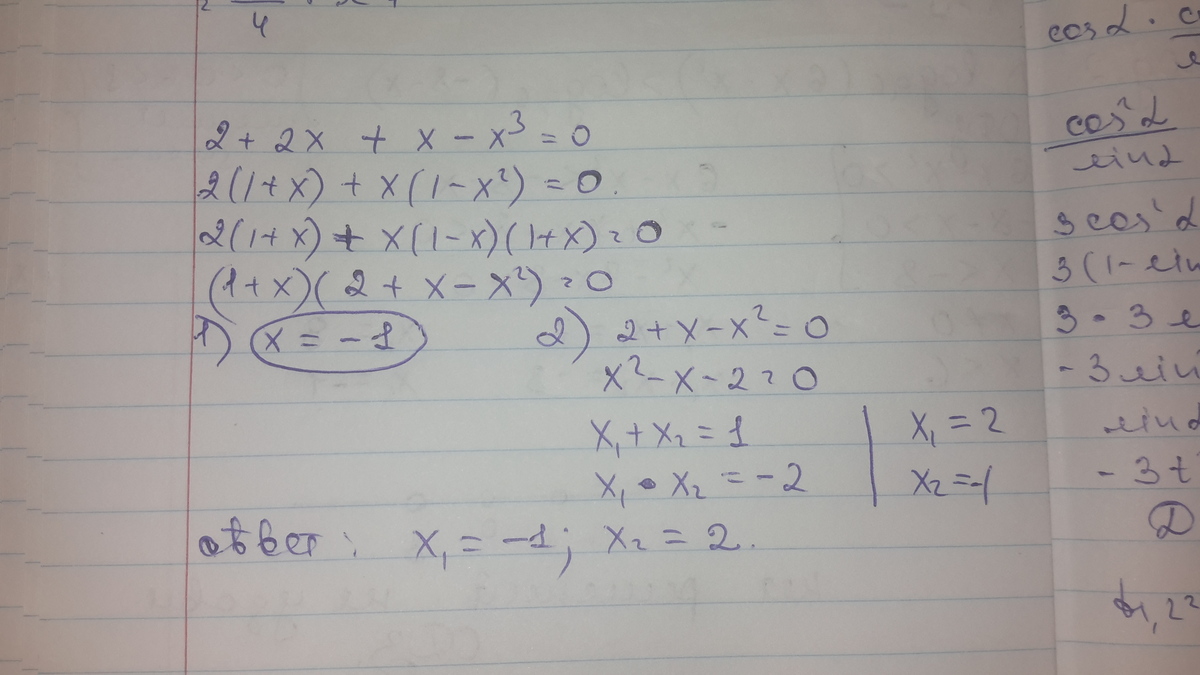 4
2 + 2x + x - x³ = 0
2(1+x) + x(1-x²) = 0.
2(1+x) + x(1-x)(1+x) = 0
(1+x)(2 + x - x²) = 0
1) x = -1 2) 2 + x - x² = 0
x² - x - 2 = 0
x₁ + x₂ = 1 | x₁ = 2
x₁ • x₂ = -2 | x₂ = -1
ответ: x₁ = -1; x₂ = 2.
cos α ·
cos² α
sin α
3 cos² α
3(1 - sin
3 - 3
- 3 sin
sin α
- 3t
D
t₁,₂